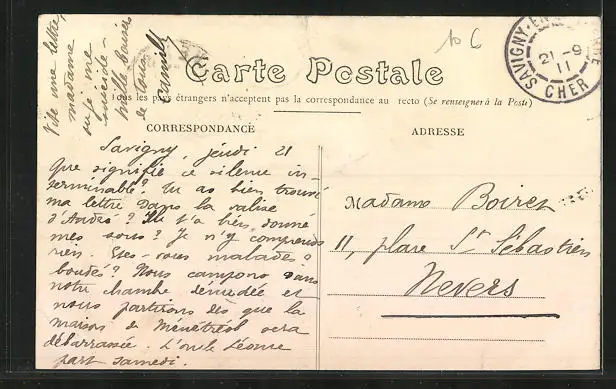 Vite une lettre,
madame
ou je me
suicide -
mille baisers
de tous
Camille
Carte Postale
Tous les pays étrangers n'acceptent pas la correspondance au recto (Se renseigner à la Poste)
CORRESPONDANCE
ADRESSE
SAVIGNY-EN
21-9
11
CHER
Savigny, jeudi 21
Que signifie ce silence in-
terminable? Tu as bien trouvé
ma lettre dans la valise
d'André? Il t'a bien donné
mes sous? Je n'y comprends
rien. Etes-vous malades?
boudés? Nous campons dans
notre chambre dénudée et
nous partirons dès que la
maison de Ménétréol sera
débarrassée. L'oncle Léonce
part samedi.
Madame Boirez
11, place St Sébastien
Nevers